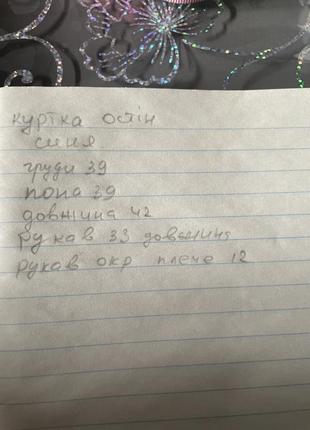 куртка осін
синя
груди 39
попа 39
довжина 42
рукав 33 довжина
рукав окр плече 12